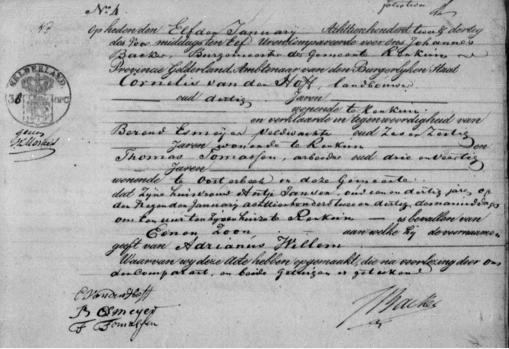 No. 4
Op heden den Elfden January Achttienhonderd twee & dertig
des Voor middags ten Elf Uren Compareerde voor ons Johannes
Backer Burgemeester der Gemeente Renkum
Provincie Gelderland Ambtenaar van den Burgerlyken Staat
GELDERLAND
Cornelis van der Hoff, landbouwer
oud dertig Jaren
wonende te Renkum
en verklaarde in tegenwoordigheid van
Berend Esmeyer Veldwachter oud Zes en Zestig
Jaren wonende te Renkum en
Thomas Tomassen, arbeider oud drie en Veertig
Jaren
wonende te Oosterbeek in deze Gemeente
dat Zyne huisvrouw Antje Jansen, oud een en dertig jare, op
den Negenden January achttienhonderd twee en dertig, des namiddags
om een uur ten Zynen huize te Renkum is bevallen van
Eenen Zoon aan welke Hy de voornamen
geeft van Adrianus Willem
Waarvan wy deze Acte hebben opgemaakt, die na voorlezing door ons
den Comparant, en beide Getuigen is geteekend
C van den Hoff
B Esmeyer
T Tomassen
J Backer